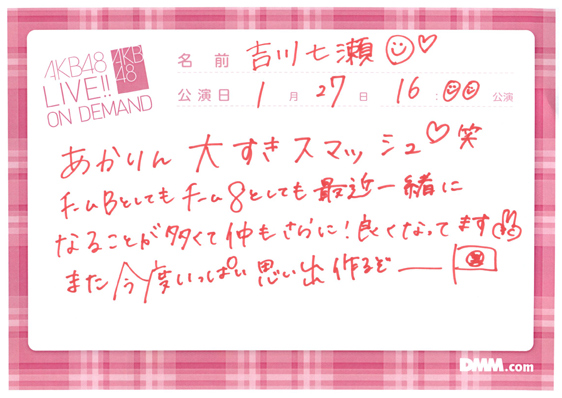 AKB48
LIVE!!
ON DEMAND
AKB
48
名前 吉川七瀬
公演日 1月27日 16:00公演
あかりん 大すきスマッシュ♡笑
チームBとしてもチーム8としても最近一緒に
なることが多くて仲もさらに!良くなってます
また今度いっぱい思い出作るぞー
8
DMM.com